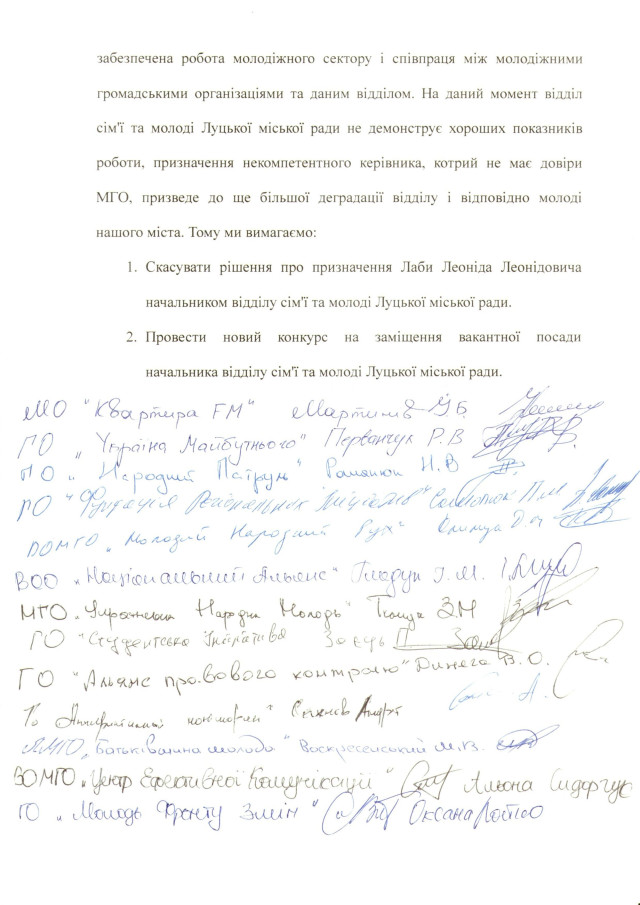 забезпечена робота молодіжного сектору і співпраця між молодіжними
громадськими організаціями та даним відділом. На даний момент відділ
сім'ї та молоді Луцької міської ради не демонструє хороших показників
роботи, призначення некомпетентного керівника, котрий не має довіри
МГО, призведе до ще більшої деградації відділу і відповідно молоді
нашого міста. Тому ми вимагаємо:
1. Скасувати рішення про призначення Лаби Леоніда Леонідовича
начальником відділу сім'ї та молоді Луцької міської ради.
2. Провести новий конкурс на заміщення вакантної посади
начальника відділу сім'ї та молоді Луцької міської ради.
МО "Квартира FM" Мартинів
ГО "Україна Майбутнього" Первачук Р.В
ПО "Народний Патруль" Романюк Н.В
ГО "Фундація Регіональних Ініціатив"
"Молодий Народний Рух"
ВОО "Національний Альянс" Гладун І.М.
МГО "Українська Народна Молодь" З.М
ГО "Студентська Ініціатива" Заєць П
ГО "Альянс правового контролю" Динега В.О.
"Батьківщина молода" Воскресенський М.В.
ВОМГО "Центр Ефективної Комунікації" Альона Сидорчук
ГО "Молодь Фронту Змін" Оксана